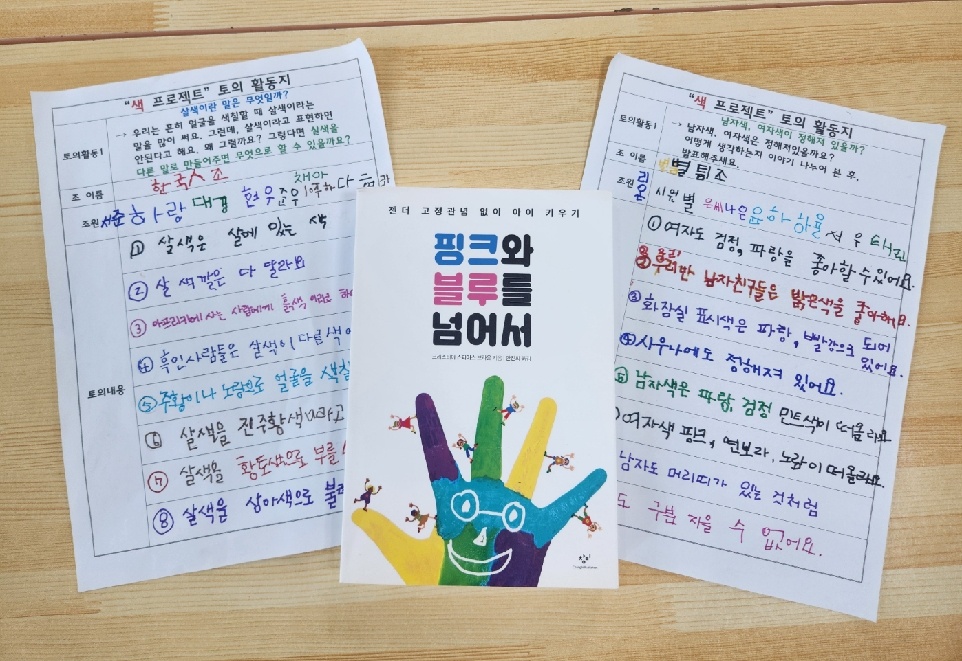 "색 프로젝트" 토의 활동지
토의활동1
살색이란 말은 무엇일까?
→ 우리는 흔히 얼굴을 색칠할 때 살색이라는
말을 많이 써요. 그런데, 살색이라고 표현하면
안된다고 해요. 왜 그럴까요? 그렇다면 살색을
다른 말로 만들어주면 무엇으로 할 수 있을까요?
조 이름
한국사 조
조원
서준 하랑 현우 준우 채아
토의내용
① 살색은 살에 있는 색
② 살 색깔은 다 달라요
③ 아프리카에 사는 사람에게 흙색
④ 흑인사람들은 살색이 다른색
⑤ 주황이나 노랑으로 얼굴을 색칠
⑥ 살색을 진주황색 이라고
⑦ 살색을 황도색으로 부를
⑧ 살색을 상아색으로
젠더 고정관념 없이 아이 키우기
핑크와
블루를
넘어서
"색 프로젝트" 토의 활동지
토의활동1
남자색, 여자색이 정해져 있을까?
→ 남자색, 여자색은 정해져있을까요?
어떻게 생각하는지 이야기 나누어 본 후,
발표해주세요.
조 이름
별팀조
조원
리온 시원 별 나은 윤하 하율 서우 태리
① 여자도 검정, 파랑을 좋아할 수 있어요.
② 우리반 남자친구들은 밝은색을 좋아해요.
③ 화장실 표시색은 파랑, 빨강으로 되어 있어요.
④ 사우나에도 정해져 있어요.
⑤ 남자색은 파랑, 검정 민트색이 떠올라요
여자색 핑크, 연보라, 노랑이 떠올라요.
남자도 머리띠가 있는 것처럼
도 구분 지을 수 없어요.